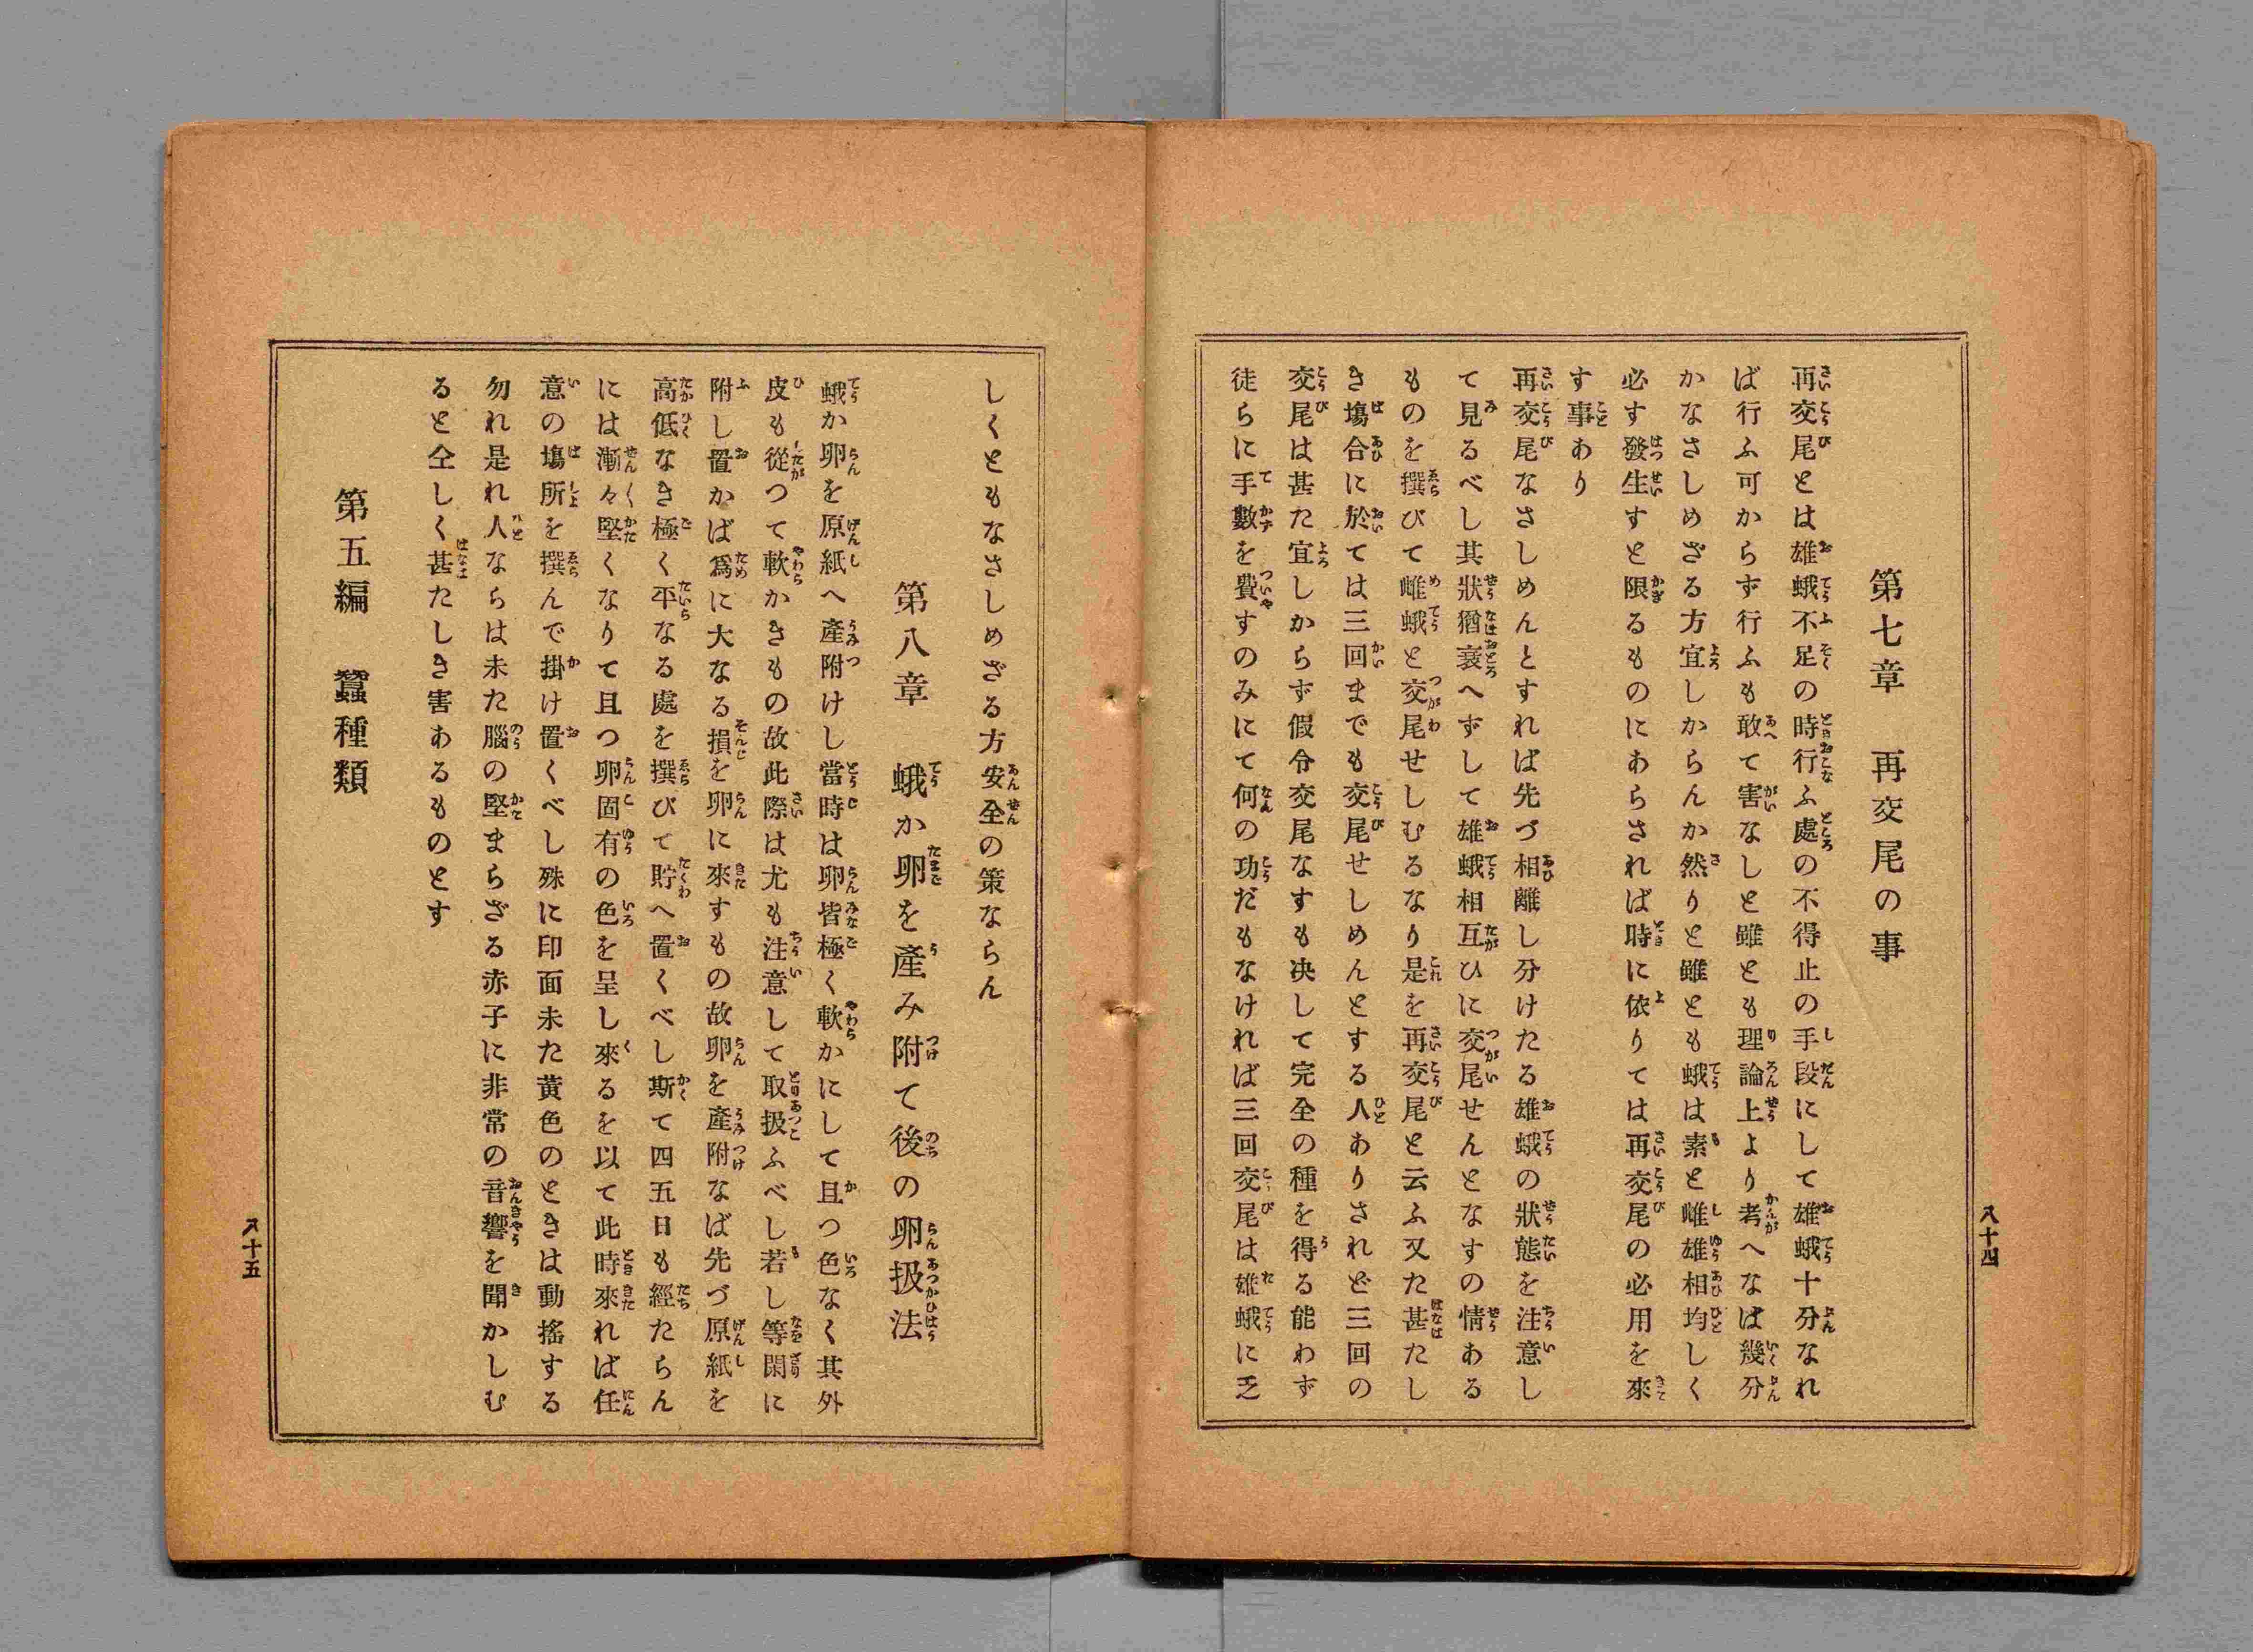 第七章　再交尾の事
再交尾とは雄蛾不足の時行ふ處の不得止の手段にして雄蛾十分なれ
ば行ふ可からず行ふも敢て害なしと雖とも理論上より考へなば幾分
かなさしめざる方宜しからんか然りと雖とも蛾は素と雌雄相均しく
必す發生すと限るものにあらされば時に依りては再交尾の必用を來
す事あり
再交尾なさしめんとすれば先づ相離し分けたる雄蛾の狀態を注意し
て見るべし其狀猶衰へずして雄蛾相互ひに交尾せんとなすの情ある
ものを撰びて雌蛾と交尾せしむるなり是を再交尾と云ふ又た甚たし
き塲合に於ては三回までも交尾せしめんとする人ありされど三回の
交尾は甚た宜しからず假令交尾なすも决して完全の種を得る能わず
徒らに手數を費すのみにて何の功だもなければ三回交尾は雄蛾に乏
八十四
しくともなさしめざる方安全の策ならん
第八章　蛾か卵を產み附て後の卵扱法
蛾か卵を原紙へ產附けし當時は卵皆極く軟かにして且つ色なく其外
皮も從つて軟かきもの故此際は尤も注意して取扱ふべし若し等閑に
附し置かば爲に大なる損を卵に來すもの故卵を產附なば先づ原紙を
高低なき極く平なる處を撰びて貯へ置くべし斯て四五日も經たらん
には漸々堅くなりて且つ卵固有の色を呈し來るを以て此時來れば任
意の塲所を撰んで掛け置くべし殊に印面未た黄色のときは動搖する
勿れ是れ人ならは未た腦の堅まらざる赤子に非常の音響を聞かしむ
ると仝しく甚たしき害あるものとす
第五編　蠶種類
八十五